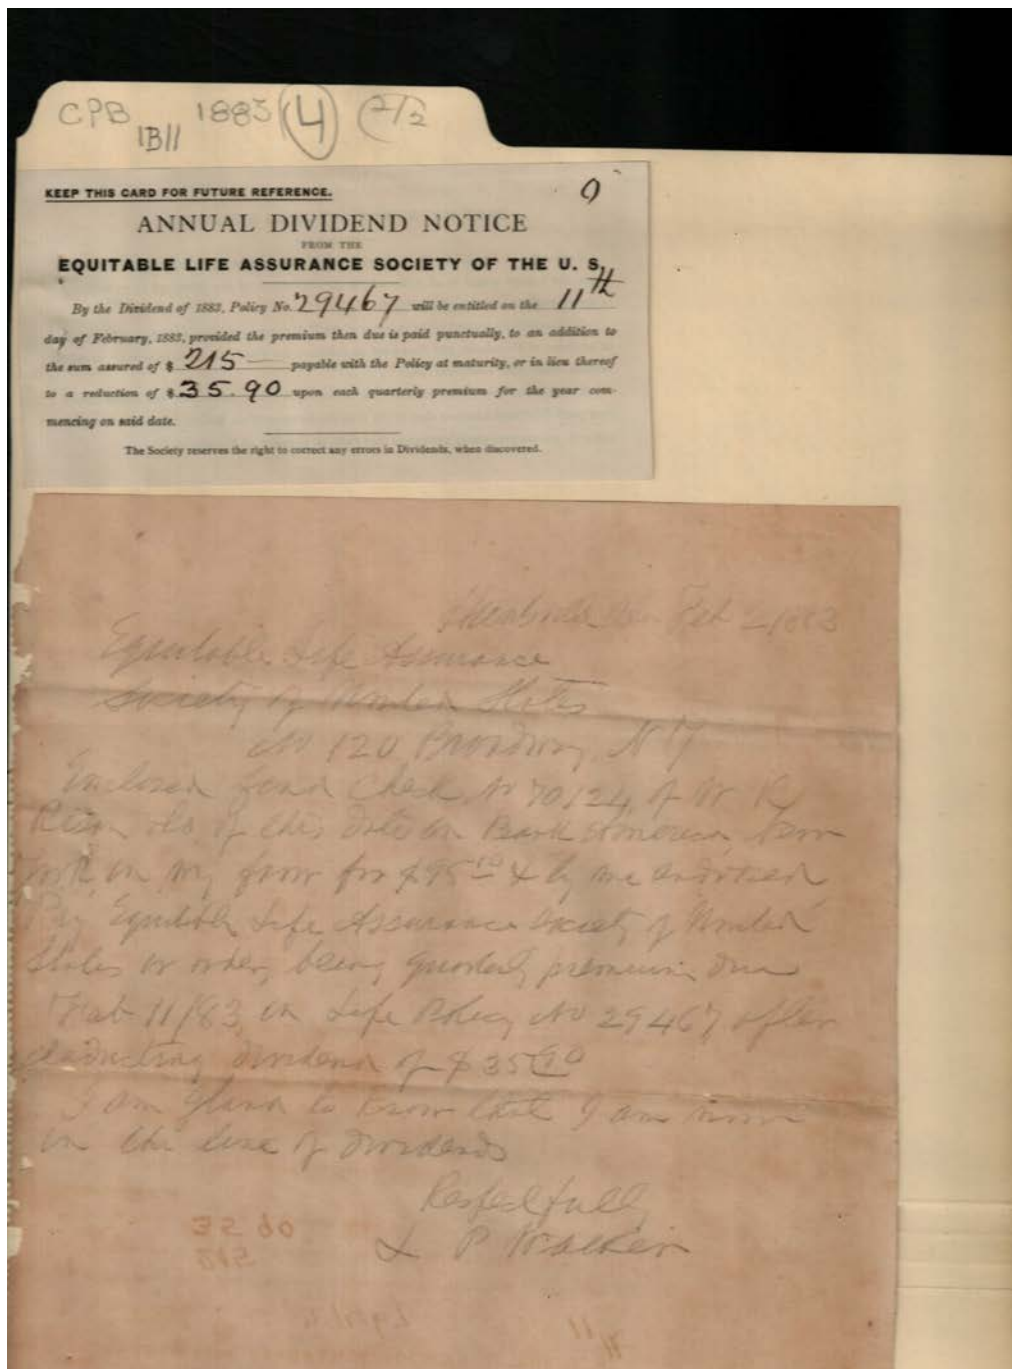 CPB 1883 (4) (2/2)
1B11
KEEP THIS CARD FOR FUTURE REFERENCE.
ANNUAL DIVIDEND NOTICE
FROM THE
EQUITABLE LIFE ASSURANCE SOCIETY OF THE U. S.
By the Dividend of 1883, Policy No. 29467 will be entitled on the 11th
day of February, 1883, provided the premium then due is paid punctually, to an addition to
the sum assured of $ 215 payable with the Policy at maturity, or in lieu thereof
to a reduction of $ 35.90 upon each quarterly premium for the year com-
mencing on said date.
The Society reserves the right to correct any errors in Dividends, when discovered.
Feb 2 1883
Equitable Life Assurance
Society of United States
No 120 Broadway, N Y
Enclosed find Check No 70124 of W R
of this date on Bank America, New
York in my favor for $95 10 & by me endorsed
Pay Equitable Life Assurance Society of United
States or order, being quarterly premium due
Feb 11/83 on Life Policy No 29467 after
deducting dividend of $35 90
I am glad to know that I am now
in the line of dividends
Respectfully
L P Walker